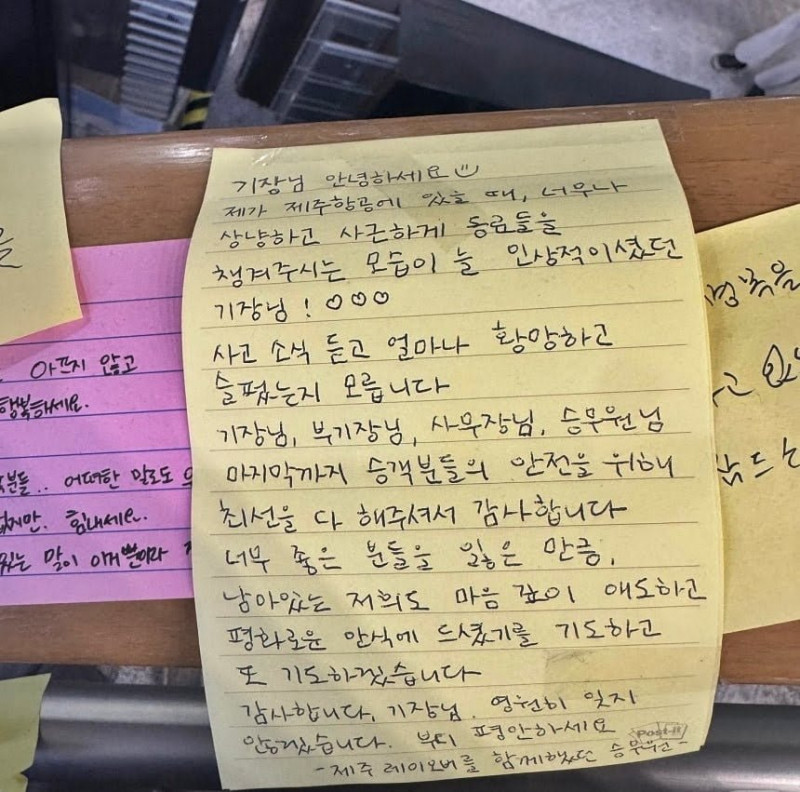 을
아프지 않고
행복하세요.
분들.. 어떠한 말로도
없지만. 힘내세요.
있는 말이 이거뿐이라
기장님 안녕하세요
제가 제주항공에 있을 때, 너무나
상냥하고 사근하게 동료들을
챙겨주시는 모습이 늘 인상적이셨던
기장님! ♡♡♡
사고 소식 듣고 얼마나 황망하고
슬펐는지 모릅니다
기장님, 부기장님, 사무장님, 승무원님
마지막까지 승객분들의 안전을 위해
최선을 다 해주셔서 감사합니다
너무 좋은 분들을 잃은 만큼,
남아있는 저희도 마음 깊이 애도하고
평화로운 안식에 드셨기를 기도하고
또 기도하겠습니다
감사합니다, 기장님. 영원히 잊지
않겠습니다. 부디 평안하세요
-제주 레이오버를 함께했던 승무원-
Post-it
명복을
고